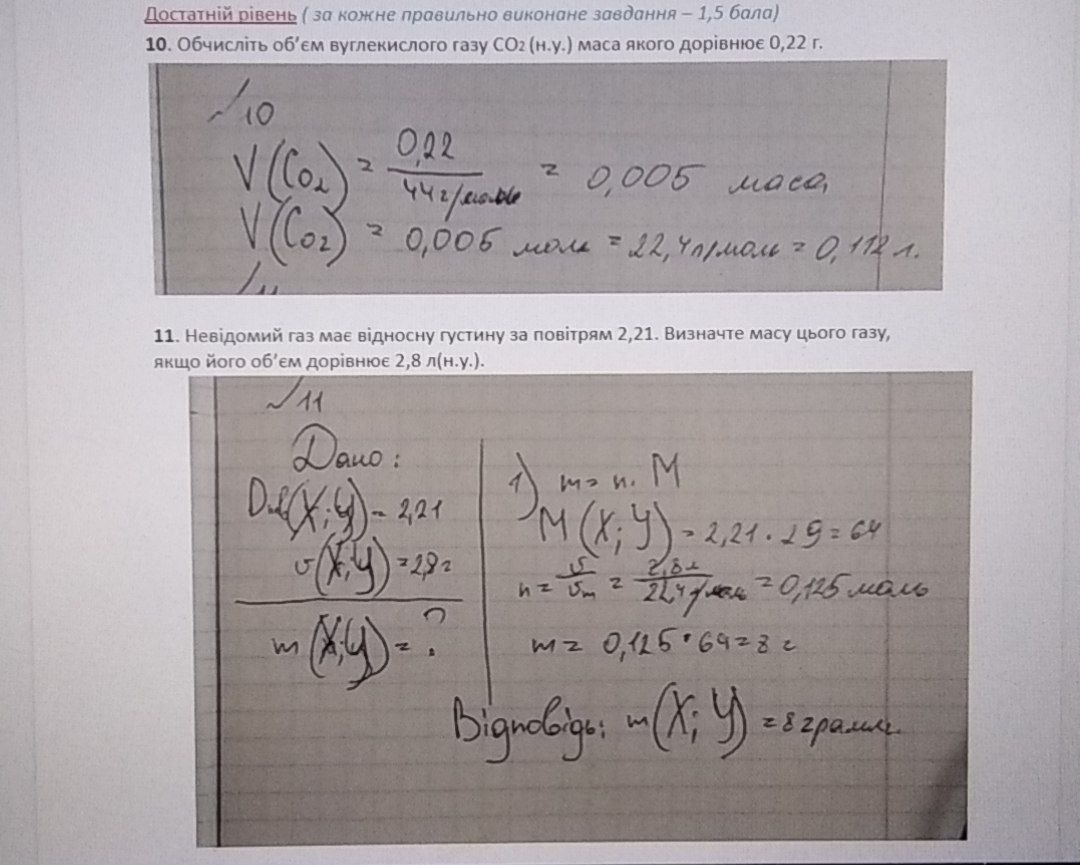 Достатній рівень ( за кожне правильно виконане завдання – 1,5 бала)
10. Обчисліть об'єм вуглекислого газу CO2 (н.у.) маса якого дорівнює 0,22 г.
№10
V(CO2) = 0,22 / 44 г/моль = 0,005 маса,
V(CO2) = 0,005 моль = 22,4 л/моль = 0,112 л.
11. Невідомий газ має відносну густину за повітрям 2,21. Визначте масу цього газу,
якщо його об'єм дорівнює 2,8 л(н.у.).
№11
Дано:
(X;Y) = 2,21
υ(X;Y) = 2,8 г
m(X;Y) = ?
1) m = n. M
M(X;Y) = 2,21 · 29 = 64
n = υ / υm = 2,8 л / 22,4 л/моль = 0,125 моль
m = 0,125 · 64 = 8 г
Відповідь: m(X;Y) = 8 грамм.